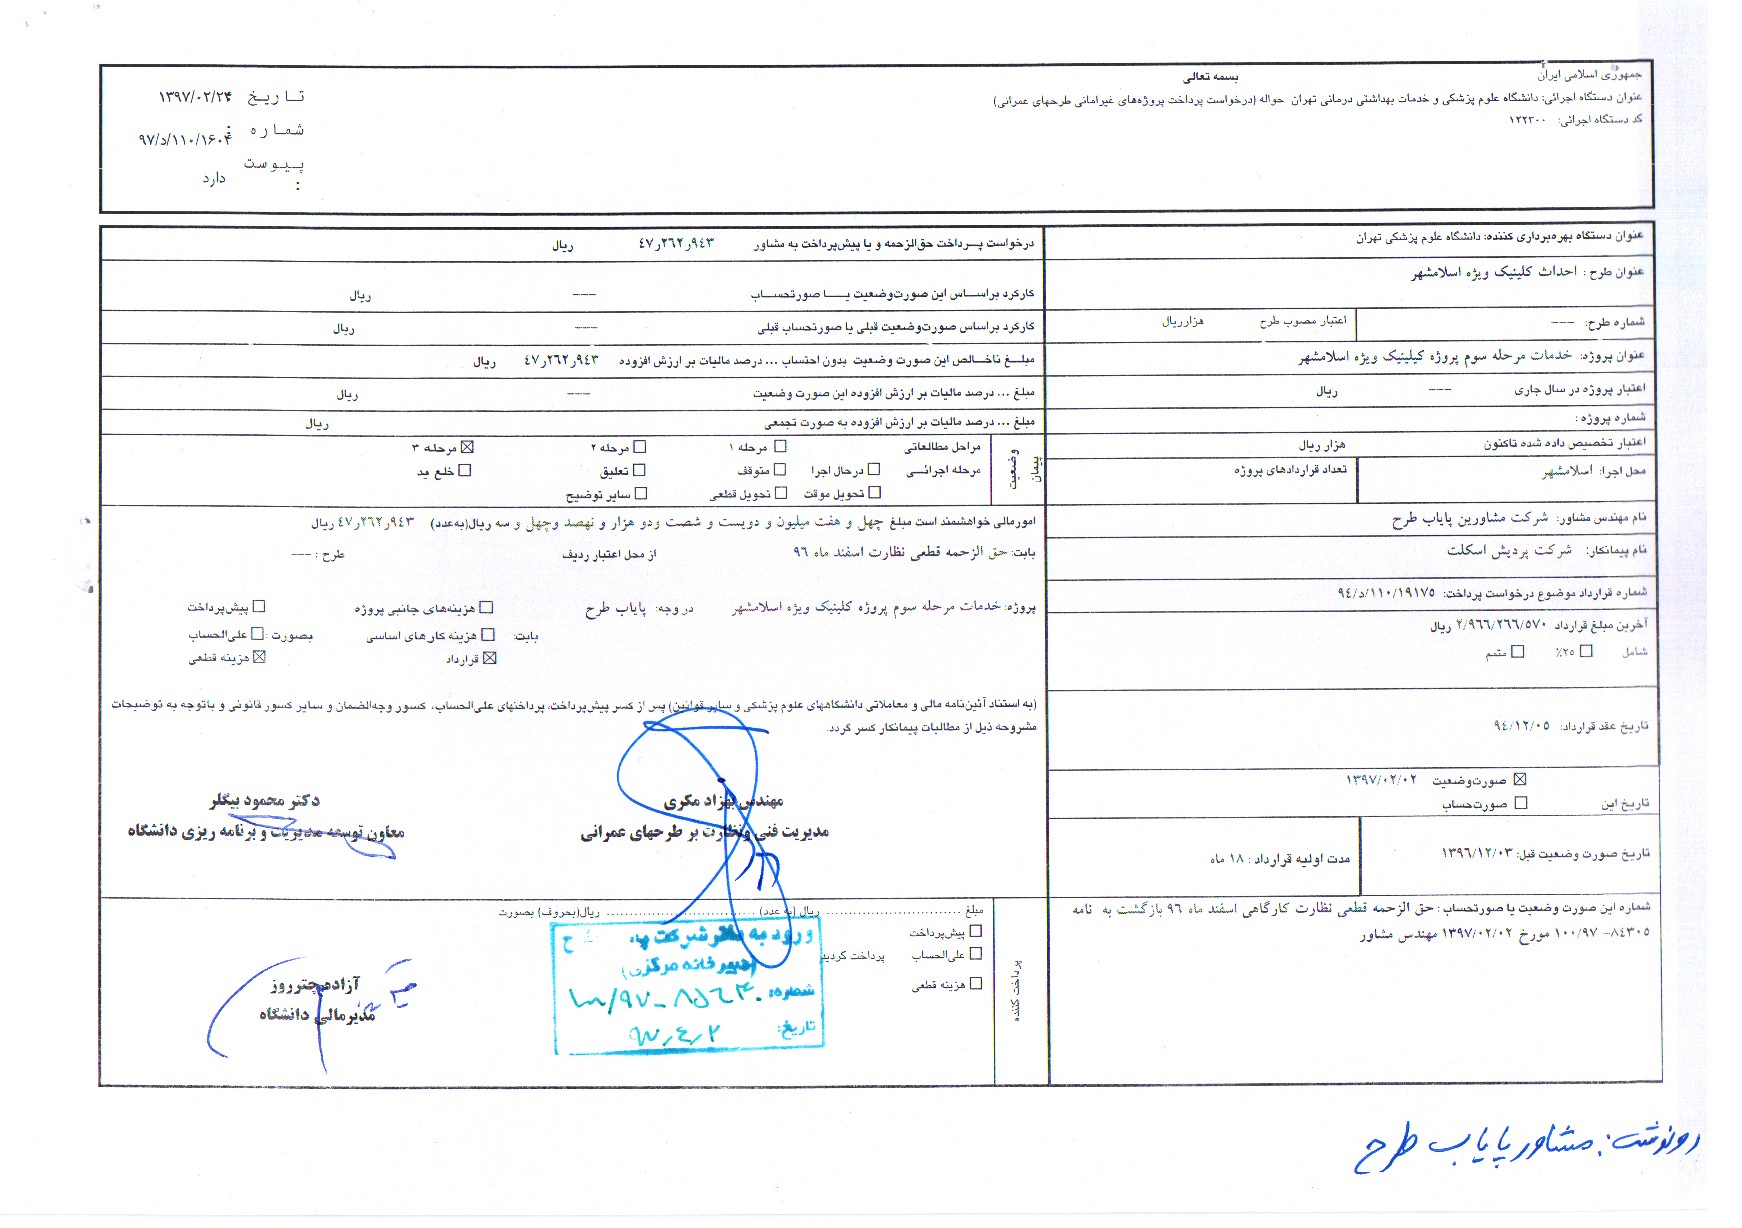 بسمه تعالی
جمهوری اسلامی ایران
عنوان دستگاه اجرائی: دانشگاه علوم پزشکی و خدمات بهداشتی درمانی تهران حواله (درخواست پرداخت پروژه‌های غیرامانی طرحهای عمرانی)
کد دستگاه اجرائی: ۱۲۲۳۰۰
تاریخ ۱۳۹۷/۰۲/۲۴
شماره : ۹۷/د/۱۱۰/۱۶۰۴
پیوست : دارد
عنوان دستگاه بهره‌برداری کننده: دانشگاه علوم پزشکی تهران
عنوان طرح : احداث کلینیک ویژه اسلامشهر
شماره طرح: ---
اعتبار مصوب طرح هزارریال
عنوان پروژه: خدمات مرحله سوم پروژه کیلینیک ویژه اسلامشهر
اعتبار پروژه در سال جاری --- ریال
شماره پروژه :
اعتبار تخصیص داده شده تاکنون هزار ریال
محل اجرا: اسلامشهر
تعداد قراردادهای پروژه
نام مهندس مشاور: شرکت مشاورین پایاب طرح
نام پیمانکار: شرکت پردیش اسکلت
شماره قرارداد موضوع درخواست پرداخت: ۹۴/د/۱۱۰/۱۹۱۷۵
آخرین مبلغ قرارداد ۲/۹۶۶/۲۶۶/۵۷۰ ریال
شامل ☐ ۲۵٪ ☐ متمم
تاریخ عقد قرارداد: ۹۴/۱۲/۰۵
☒ صورت‌وضعیت ۱۳۹۷/۰۲/۰۲
تاریخ این ☐ صورت‌حساب
تاریخ صورت وضعیت قبل: ۱۳۹۶/۱۲/۰۳
مدت اولیه قرارداد : ۱۸ ماه
شماره این صورت وضعیت یا صورتحساب : حق الزحمه قطعی نظارت کارگاهی اسفند ماه ۹۶ بازگشت به نامه
۸۴۳۰۵-۱۰۰/۹۷ مورخ ۱۳۹۷/۰۲/۰۲ مهندس مشاور
درخواست پرداخت حق‌الزحمه و یا پیش‌پرداخت به مشاور ۴۷٫۲۶۲٫۹۴۳ ریال
کارکرد براساس این صورت‌وضعیت یا صورتحساب --- ریال
کارکرد براساس صورت‌وضعیت قبلی یا صورتحساب قبلی --- ریال
مبلغ ناخالص این صورت وضعیت بدون احتساب ... درصد مالیات بر ارزش افزوده ۴۷٫۲۶۲٫۹۴۳ ریال
مبلغ ... درصد مالیات بر ارزش افزوده این صورت وضعیت --- ریال
مبلغ ... درصد مالیات بر ارزش افزوده به صورت تجمعی ریال
وضعیت پیمان
مراحل مطالعاتی ☐ مرحله ۱ ☐ مرحله ۲ ☒ مرحله ۳
مرحله اجرائی ☐ درحال اجرا ☐ متوقف ☐ تعلیق ☐ خلع ید
☐ تحویل موقت ☐ تحویل قطعی ☐ سایر توضیح
امورمالی خواهشمند است مبلغ چهل و هفت میلیون و دویست و شصت ودو هزار و نهصد وچهل و سه ریال(به‌عدد) ۴۷٫۲۶۲٫۹۴۳ ریال
بابت: حق الزحمه قطعی نظارت اسفند ماه ۹۶ از محل اعتبار ردیف طرح : ---
پروژه: خدمات مرحله سوم پروژه کلینیک ویژه اسلامشهر در وجه: پایاب طرح ☐ هزینه‌های جانبی پروژه ☐ پیش‌پرداخت
بابت: ☐ هزینه کارهای اساسی بصورت : ☐ علی‌الحساب
☒ قرارداد ☒ هزینه قطعی
(به استناد آئین‌نامه مالی و معاملاتی دانشگاههای علوم پزشکی و سایر قوانین) پس از کسر پیش‌پرداخت، پرداختهای علی‌الحساب، کسور وجه‌الضمان و سایر کسور قانونی و باتوجه به توضیحات
مشروحه ذیل از مطالبات پیمانکار کسر گردد.
مهندس بهزاد مکری
مدیریت فنی ونظارت بر طرحهای عمرانی
دکتر محمود بیگلر
معاون توسعه مدیریت و برنامه ریزی دانشگاه
پرداخت کننده
مبلغ .............................. ریال (به عدد) .............................. ریال(بحروف) بصورت
☐ پیش‌پرداخت
☐ علی‌الحساب پرداخت گردید
☐ هزینه قطعی
ورود به دفتر شرکت
(دبیرخانه مرکزی)
شماره: ۱۰۰/۹۷-۸۵۶۳۰
تاریخ: ۹۷٫۴٫۲
آزاده چترروز
مدیرمالی دانشگاه
رونوشت: مشاور پایاب طرح